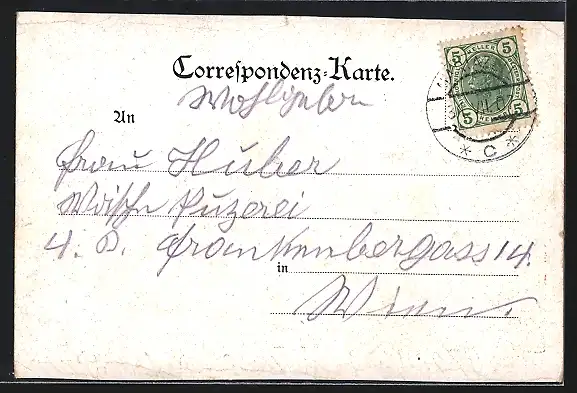 Correspondenz-Karte.
Wohlgebor
An
Frau Huber
Wäsche Puzerei
4. B. Frankenbergass 14.
in
Wien.
5 HELLER 5
5 5
* C *